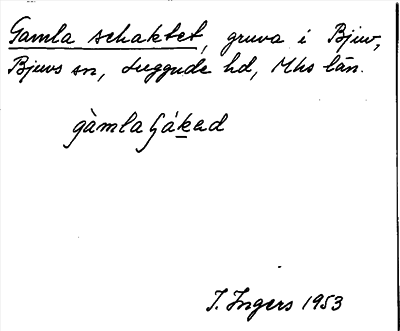 Gamla schaktet, gruva i Bjuv,
Bjuvs sn, Luggude hd, Mhs län.
gàmla ʃákad
I. Ingers 1953